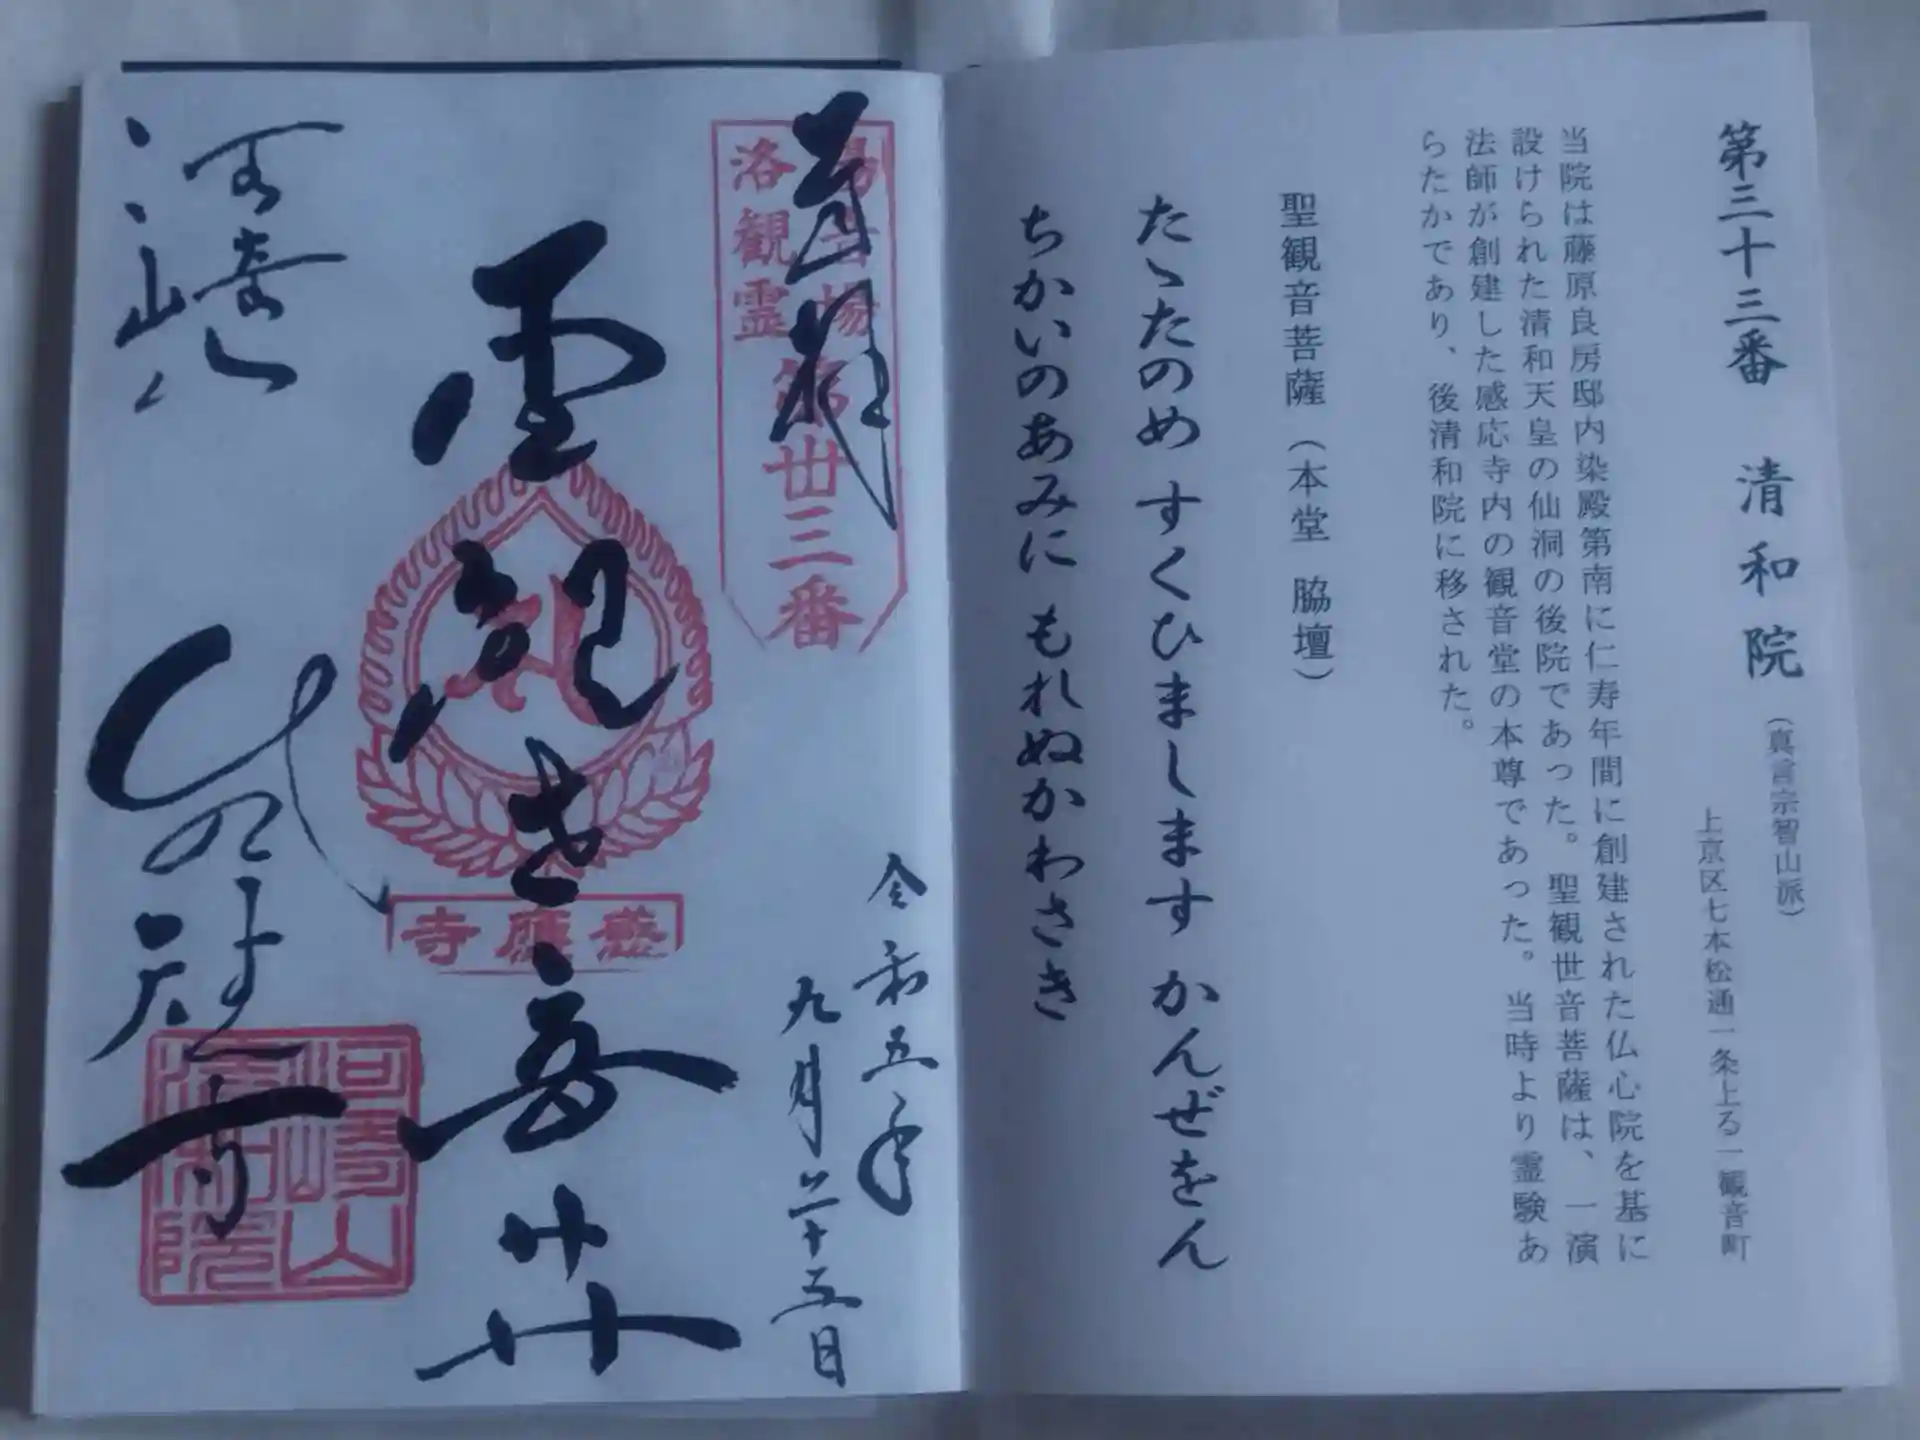 第三十三番 清和院（真言宗智山派）
上京区七本松通一条上る一観音町
当院は藤原良房邸内染殿第南に仁寿年間に創建された仏心院を基に
設けられた清和天皇の仙洞の後院であった。聖観世音菩薩は、一演
法師が創建した感応寺内の観音堂の本尊であった。当時より霊験あ
らたかであり、後清和院に移された。
聖観音菩薩（本堂 脇壇）
たゝたのめ すくひまします かんぜをん
ちかいのあみに もれぬかわさき
奉拝
洛陽
観音
霊場
第丗三番
令和五年
九月二十五日
聖観世音
感應寺
河崎
感応寺
河崎山
清和院